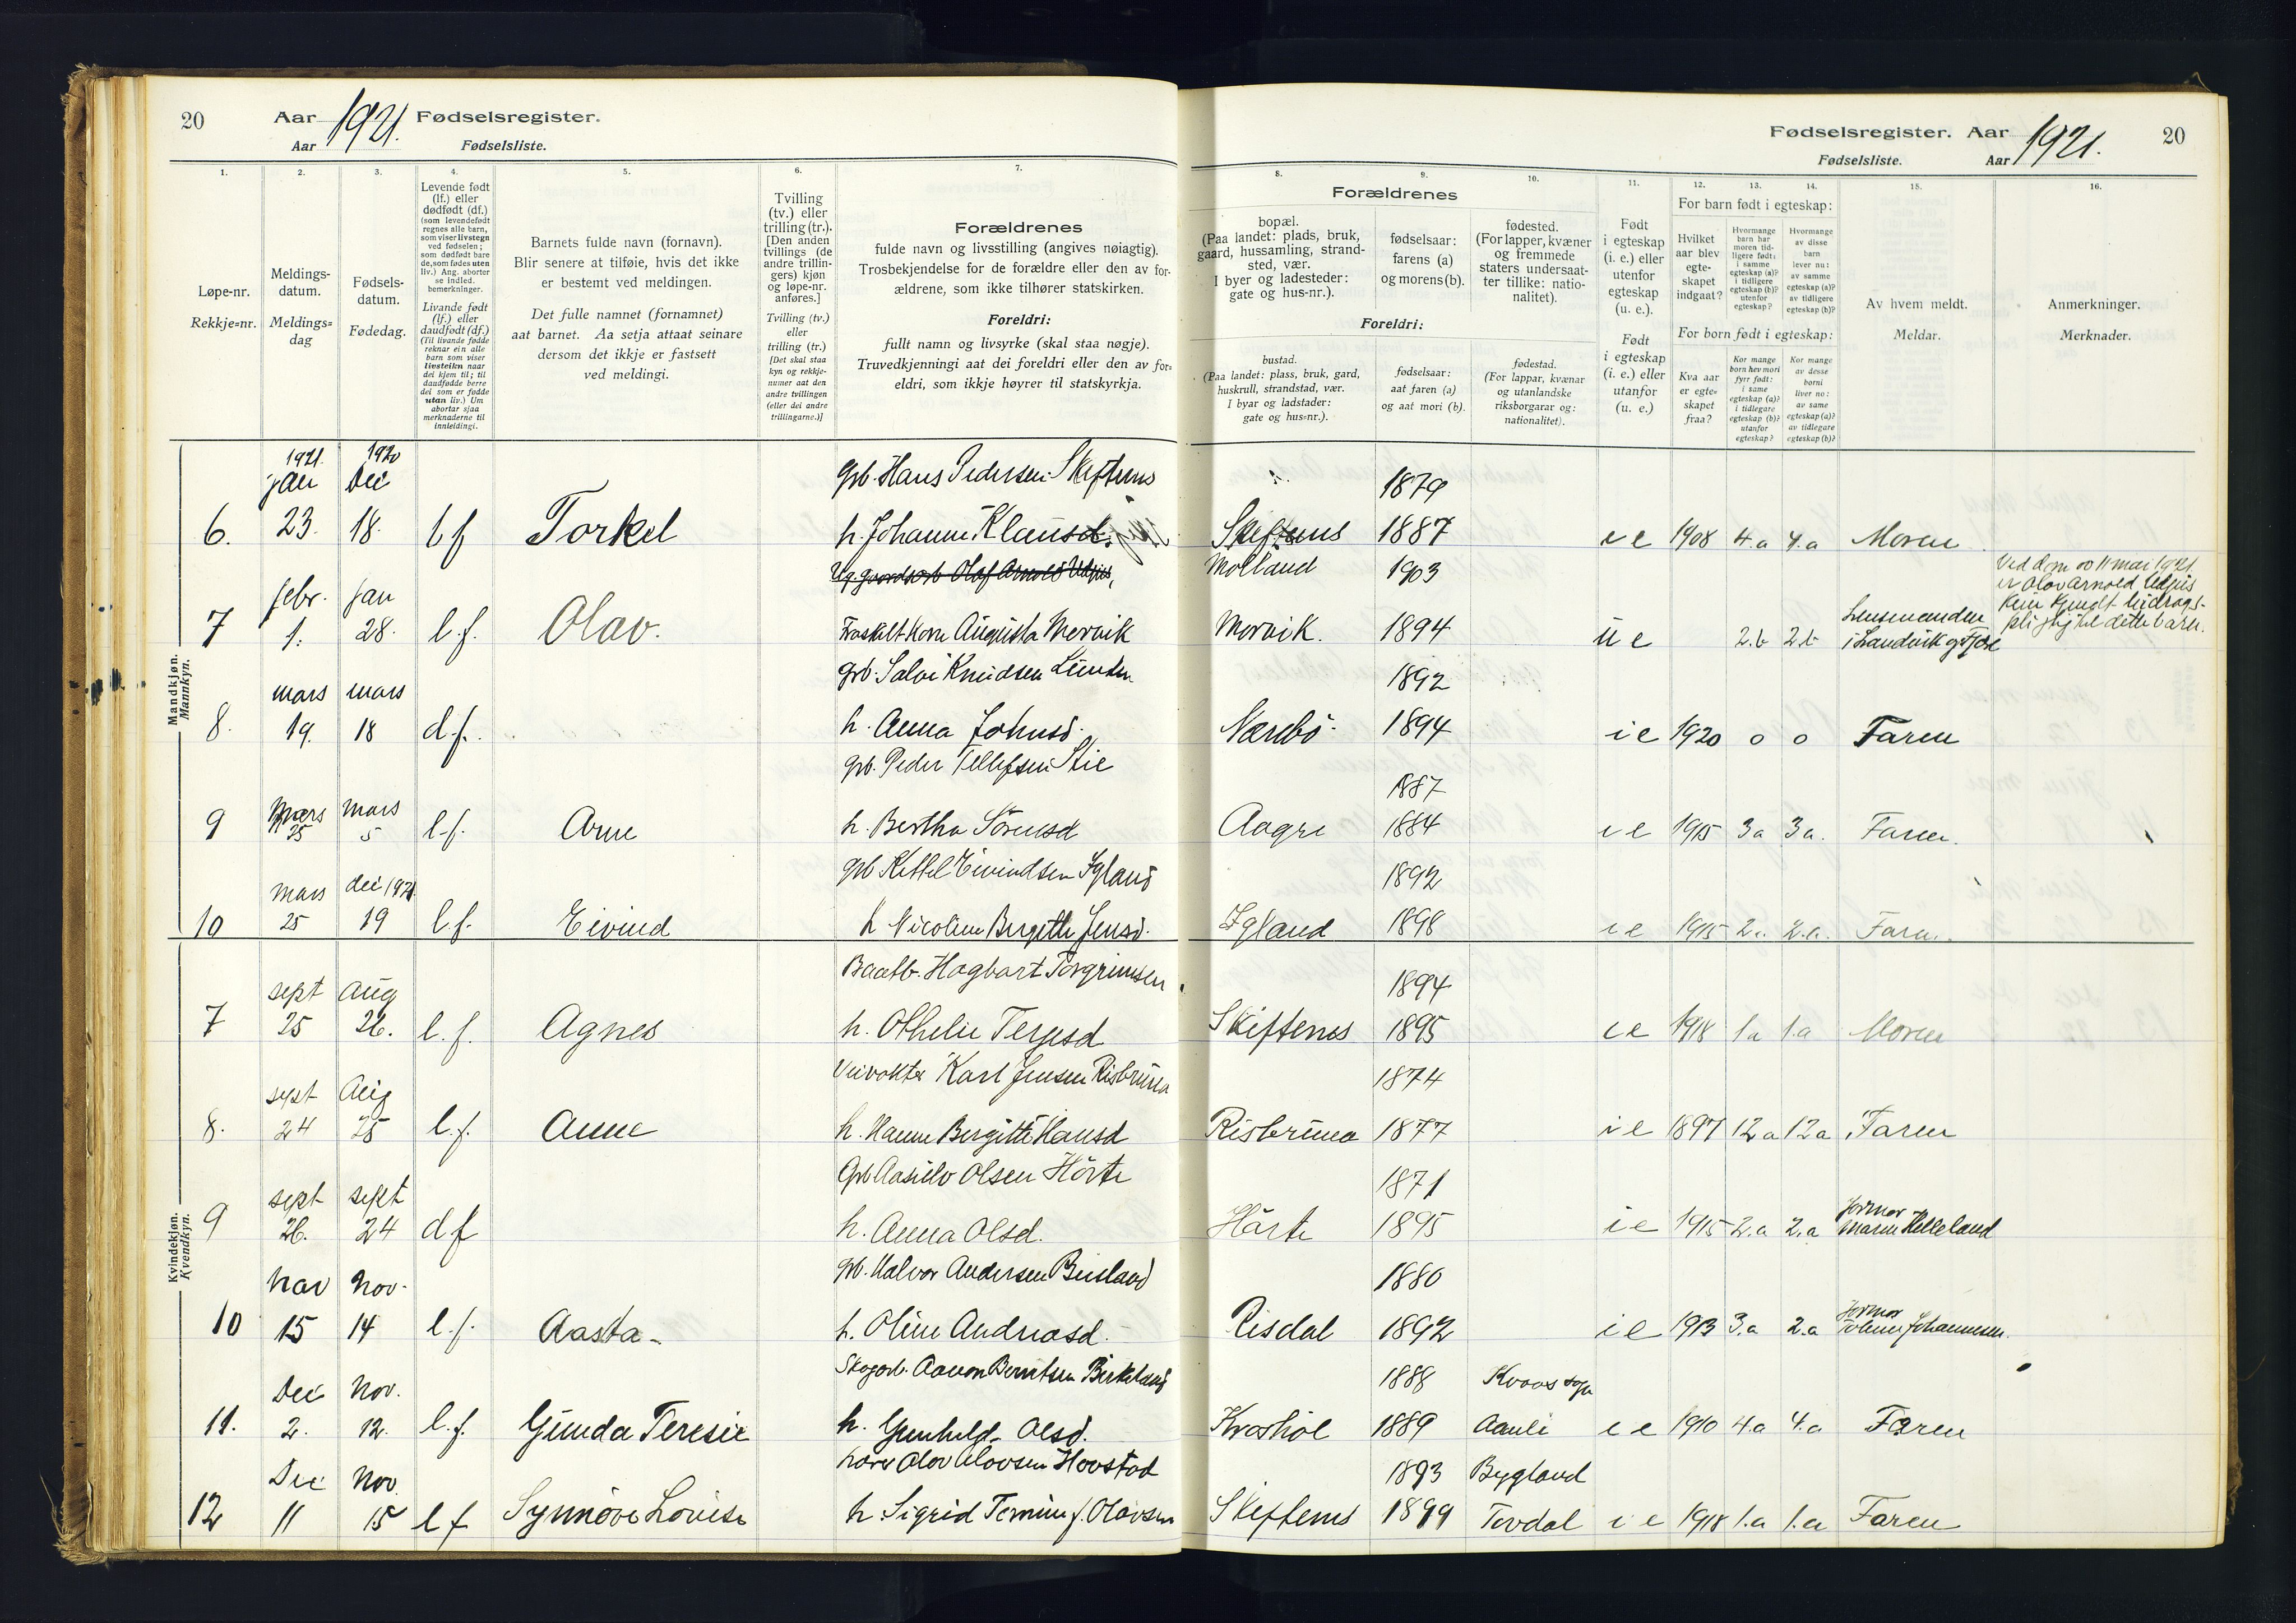 20
Aar 1921. Fødselsregister.
Aar Fødselsliste.
Fødselsregister. Aar 1921. 20
Fødselsliste. Aar
1.
Løpe-nr.
Rekkje-nr.
2.
Meldings-
datum.
Meldings-
dag
3.
Fødsels-
datum.
Fødedag.
4.
Levende født
(lf.) eller
dødfødt (df.)
(som levendefødt
regnes alle barn,
som viser livstegn
ved fødselen;
som dødfødt bare
de, som fødes uten
liv.) Ang. aborter
se indled.
bemerkninger.
Livande født
(lf.) eller
daudfødt (df.)
(Til livande fødde
reknar ein alle
barn som viser
livsteikn naar
dei kjem til; til
daudfødde berre
dei som er fødde
utan liv.) Um
abortar sjaa
merknaderne til
innleidingi.
5.
Barnets fulde navn (fornavn).
Blir senere at tilføie, hvis det ikke
er bestemt ved meldingen.
Det fulle namnet (fornamnet)
aat barnet. Aa setja attaat seinare
dersom det ikkje er fastsett
ved meldingi.
6.
Tvilling
(tv.) eller
trilling (tr.).
[Den anden
tvillings (de
andre trillin-
gers) kjøn
og løpe-nr.
anføres.]
Tvilling (tv.)
eller
trilling (tr.)
[Det skal staa
kyn og rekkje-
numer aat den
andre tvillingen
(eller dei andre
trillingarne.)]
7.
Forældrenes
fulde navn og livsstilling (angives nøiagtig).
Trosbekjendelse for de forældre eller den av for-
ældrene, som ikke tilhører statskirken.
Foreldri:
fullt namn og livsyrke (skal staa nøgje).
Truvedkjenningi aat dei foreldri eller den av for-
eldri, som ikkje høyrer til statskyrkja.
8.
Forældrenes
bopæl.
(Paa landet: plads, bruk,
gaard, hussamling, strand-
sted, vær.
I byer og ladesteder:
gate og hus-nr.).
Foreldri:
bustad.
(Paa landet: plass, bruk, gard,
huskrull, strandstad, vær.
I byar og ladstader:
gate og hus-nr.).
9.
fødselsaar:
farens (a)
og morens (b).
fødselsaar:
aat faren (a)
og aat mori (b).
10.
fødested.
(For lapper, kvæner
og fremmede
staters undersaat-
ter tillike: natio-
nalitet).
fødestad.
(For lappar, kvænar
og utanlandske
riksborgarar og:
nationalitet).
11.
Født
i egteskap
(i. e.) eller
utenfor
egteskap
(u. e.).
Født
i egteskap
(i. e.) eller
utanfor
(u. e.)
12.
For barn født i egteskap:
Hvilket
aar blev
egte-
skapet
indgaat?
For born født i egteskap:
Kva aar
er egte-
skapet
fraa?
13.
Hvormange
barn har
moren tid-
ligere født:
i samme
egteskap (a)?
i tidligere
egteskap (b)?
utenfor
egteskap?
Kor mange
born hev mori
fyrr født:
i same
egteskap (a)?
i tidlegare
egteskap (b)?
utanfor
egteskap?
14.
Hvormange
av disse
barn
lever nu:
av samme
egteskap (a)?
av tidligere
egteskap (b)?
Kor mange
av desse
borni
liver no:
av same
egteskap (a)?
av tidlegare
egteskap (b)?
15.
Av hvem meldt.
Meldar.
16.
Anmerkninger.
Merknader.
Mandkjøn.
Mannkyn.
1921. 1920
jan Dec Grb. Hans Pedersen Skiftenes 1879
6. 23. 18. l f Torkel h. Johanne Klausd. Skiftenes 1887 i e 1908 4.a 4.a Moren
Ug. gaardsarb Olaf Arnold Udjus, Molland 1903
febr. jan
7 1. 28. l. f. Olav. Fraskilt kone Augusta Mørvik Mørvik. 1894 u e 2.b 2.b Lensmanden
i Landvik og Fjære
Ved dom 11 mai 1921
er Olav Arnold Udjus
kjendt bidrags-
pligtig til dette barn.
mars mars Grb. Salve Knudsen 1892
8. 19. 18 d. f. h. Anna Johnsd. Nærebø 1894 i e 1920 0 0 Faren
Grb. Peder Tellefsen Stie 1887
9 Mars 25 mars 5 l. f. Arne h. Bertha Sørensd Aagre 1884 i e 1915 3 a 3 a. Faren.
Grb Kittel Eivindsen Igland 1892
10 mars 25 dec 1920 19 l. f. Eivind h Nicoline Bergitte Jensd. Igland 1898 i e 1915 2. 2.a. Faren.
Kvindekjøn.
Kvendkyn.
Baatb. Hagbart Torgrimsen 1894
7 sept 25 Aug 26. l. f. Agnes h. Othelie Terjesd Skiftenes 1895 i e 1918 1 a 1.a Moren
Veivokter Karl Jensen Risbruna 1874
8. sept 24 Aug 25 l. f. Anne h. Hanne Bergitte Hansd Risbruna 1877 i e 1897 12 a 12 a Faren
Grb Aasulv Olsen Hørte 1871
9 sept 26. sept 24 d f h. Anna Olsd. Hørte 1895 i e 1915 2.a 2.a Jormor
Maren Helleland
Grb. Halvor Andersen Beisland 1880
10 Nov 15 Nov. 14 l. f. Aasta h. Oline Andreasd. Risdal 1892 i e 1913 3.a 2.a Jormor
Johannesen.
Skogarb. Aanon Berntsen Birkeland 1888
11. Dec 2. Nov. 12. l. f. Gunda Teresie h. Gunhild Olsd. 1889 Aauli i e 1910 4.a 4.a Faren
Lærer Olav Olavsen Hovstad 1893 Bygland
12 Dec 11 Nov. 15 l f Synnøve Lovise h. Sigrid Tomine f. Olavsen Skiftenes 1899 Tovdal i e 1918 1.a 1.a Faren